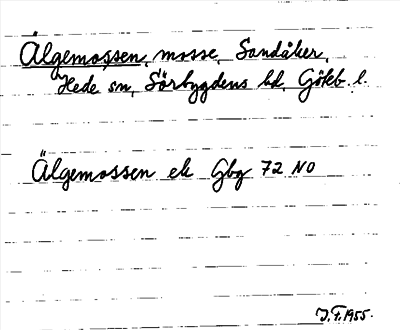 Älgemossen, mosse, Sandåker,
Hede sn, Sörbygdens hd, Göteb. l.
Älgemossen ek Gbg 72 NO
J.F. 1955.